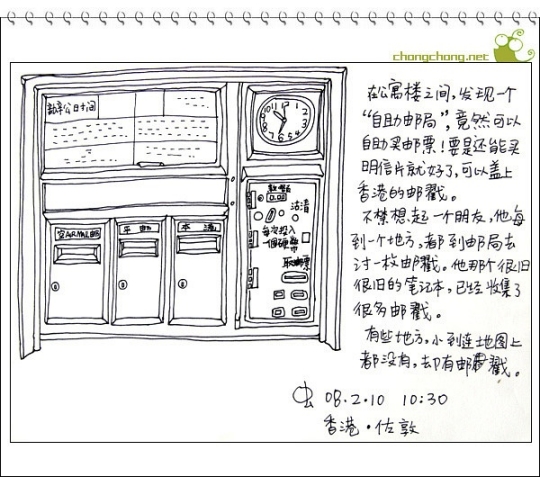 chongchong.net
在公寓楼之间，发现一个
“自助邮局”，竟然可以
自助买邮票！要是还能买
明信片就好了，可以盖上
香港的邮戳。
不禁想起一个朋友，他每
到一个地方，都到邮局去
讨一枚邮戳。他那个很旧
很旧的笔记本，已经收集了
很多邮戳。
有些地方，小到连地图上
都没有，却有邮戳。
虫 08.2.10 10:30
香港·佐敦
办公时间
空AIRMAIL邮
平邮
本港
沽清
每次投入
一個硬幣
取郵票